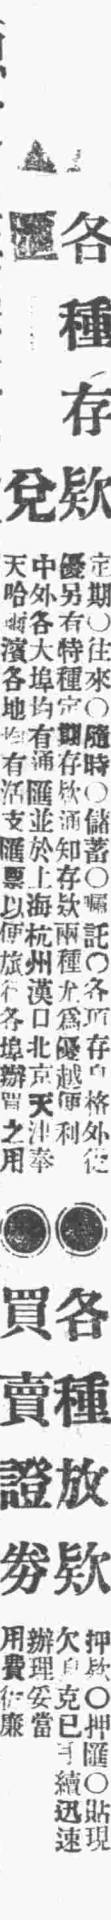 各種存欵
匯兌
定期〇往來〇隨時〇儲蓄〇囑託〇各項存息格外從
優另有特種定期存欵通知存欵兩種尤爲優越便利
中外各大埠均有通匯並於上海杭州漢口北京天津奉
天哈爾濱各地均有活支匯票以便旅行各埠辦貨之用
各種放欵
買賣證劵
押欵〇押匯〇貼現
欠息克已手續迅速
辦理妥當
用費低廉